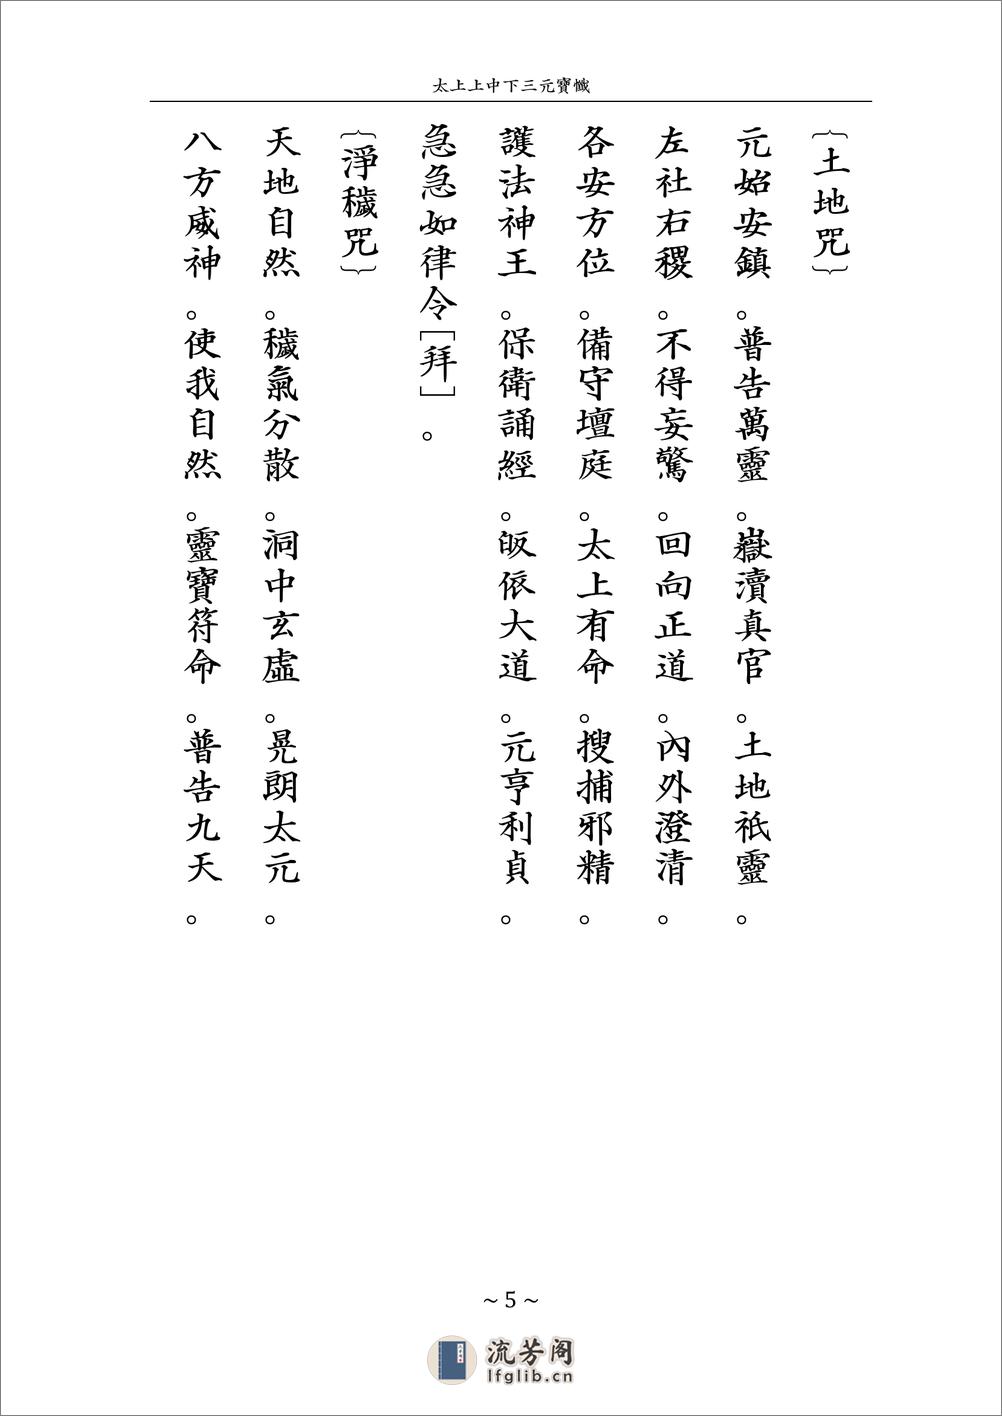 太上上中下三元寶懺
{土地咒}
元始安鎮。普告萬靈。嶽瀆真官。土地祇靈。
左社右稷。不得妄驚。回向正道。內外澄清。
各安方位。備守壇庭。太上有命。搜捕邪精。
護法神王。保衛誦經。皈依大道。元亨利貞。
急急如律令[拜]。
{淨穢咒}
天地自然。穢氣分散。洞中玄虛。晃朗太元。
八方威神。使我自然。靈寶符命。普告九天。
~ 5 ~
流芳阁
lfglib.cn